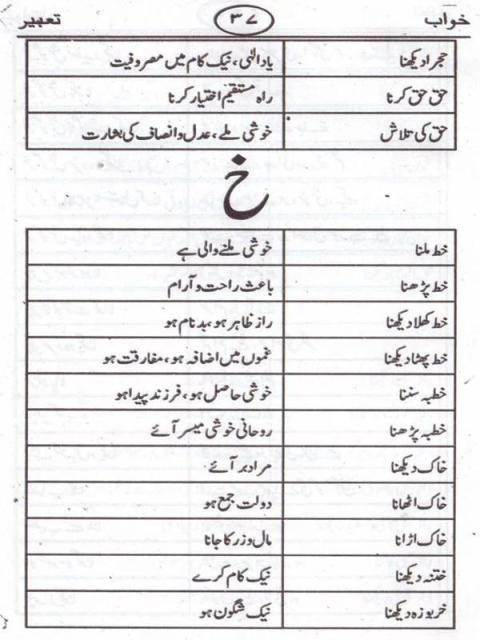 خواب ۳۷ تعبیر
حجر ا دیکھنا یاد الٰہی، نیک کام میں مصروفیت
حق حق کرنا راہ مستقیم اختیار کرنا
حق کی تلاش خوشی ملے، عدل و انصاف کی بشارت
خ
خط ملنا خوشی ملنے والی ہے
خط پڑھنا باعث راحت و آرام
خط کھلا دیکھنا راز ظاہر ہو، بدنام ہو
خط پھٹا دیکھنا غموں میں اضافہ ہو، مفارقت ہو
خطبہ سننا خوشی حاصل ہو، فرزند پیدا ہو
خطبہ پڑھنا روحانی خوشی میسر آئے
خاک دیکھنا مراد بر آئے
خاک اٹھانا دولت جمع ہو
خاک اڑانا مال و زر کا جانا
ختنہ دیکھنا نیک کام کرے
خربوزہ دیکھنا نیک شگون ہو